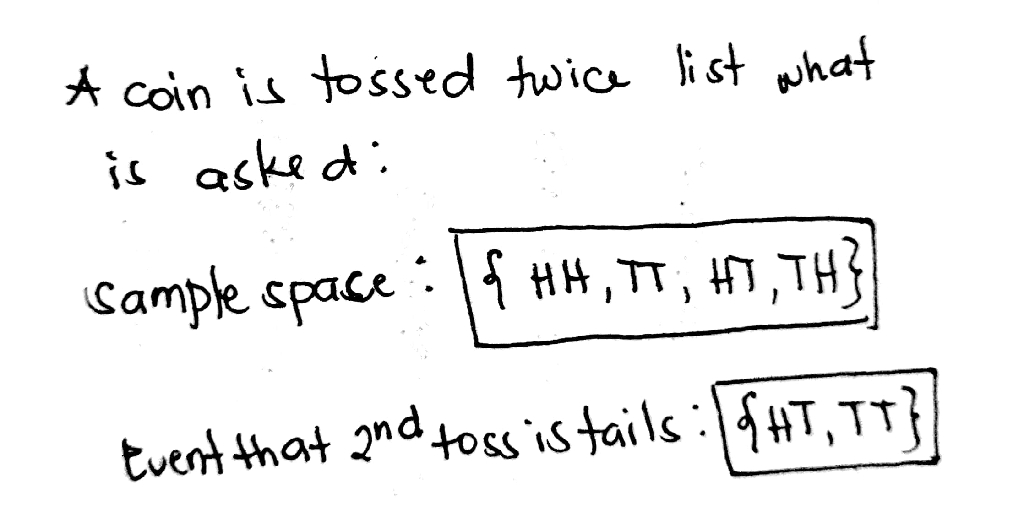 A coin is tossed twice list what
is asked:
sample space: { HH, TT, HT, TH}
Event that 2nd toss is tails: {HT, TT}